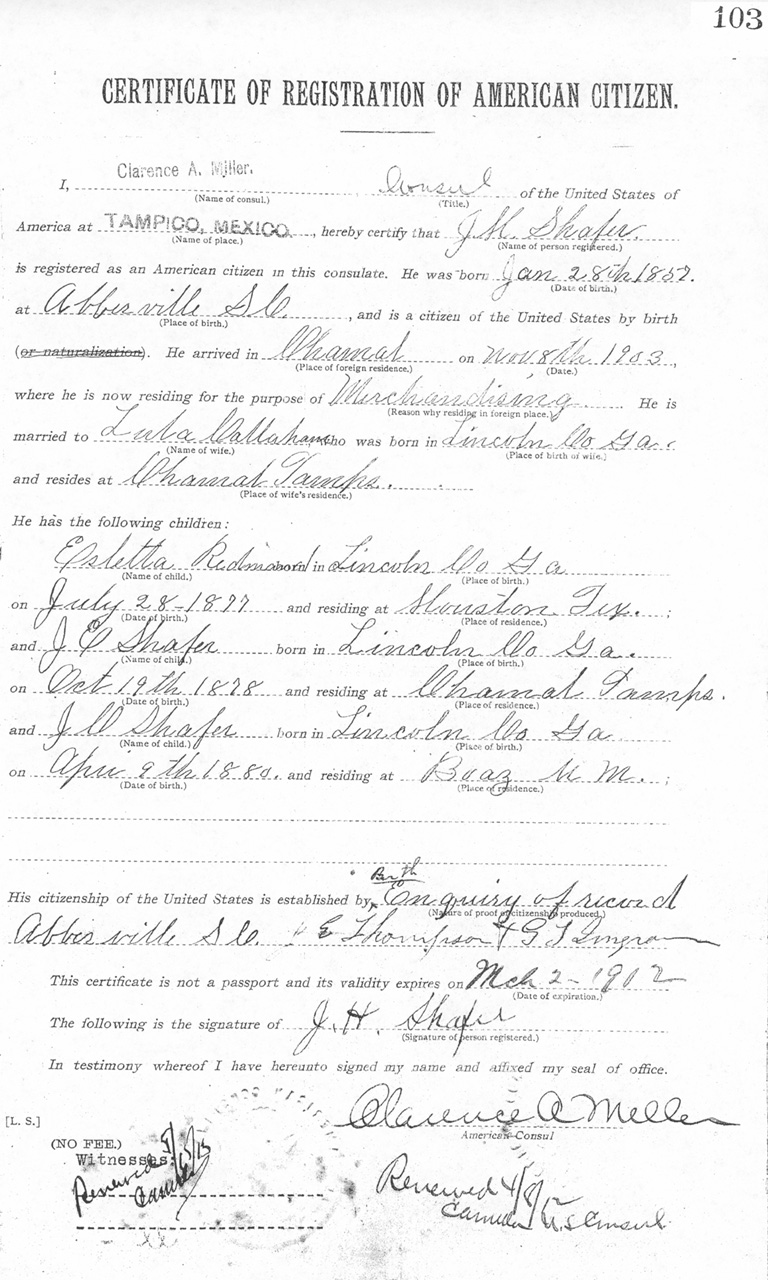 103
CERTIFICATE OF REGISTRATION OF AMERICAN CITIZEN.
I, Clarence A. Miller. Consul of the United States of
(Name of consul.) (Title.)
America at TAMPICO, MEXICO. , hereby certify that J. H. Shafer.
(Name of place.) (Name of person registered.)
is registered as an American citizen in this consulate. He was born Jan 28th 1857.
(Date of birth.)
at Abberville S C. , and is a citizen of the United States by birth
(Place of birth.)
(or naturalization). He arrived in Chamal on Nov 8th 1903,
(Place of foreign residence.) (Date.)
where he is now residing for the purpose of Merchandising. He is
(Reason why residing in foreign place.)
married to Lula Callaham who was born in Lincoln Co Ga.
(Name of wife.) (Place of birth of wife.)
and resides at Chamal Tamps.
(Place of wife's residence.)
He has the following children:
Estetta Redmond born in Lincoln Co Ga
(Name of child.) (Place of birth.)
on July 28-1877 and residing at Houston Tex. ;
(Date of birth.) (Place of residence.)
and J E Shafer born in Lincoln Co Ga.
(Name of child.) (Place of birth.)
on Oct 19th 1878 and residing at Chamal Tamps.
(Date of birth.) (Place of residence.)
and J O Shafer born in Lincoln Co Ga
(Name of child.) (Place of birth.)
on Apri 9th 1880. and residing at Boaz N M. ;
(Date of birth.) (Place of residence.)
Birth
His citizenship of the United States is established by Enquiry of record
(Nature of proof of citizenship produced.)
Abberville S C. E Thompson & G T Ingram
This certificate is not a passport and its validity expires on Mch 2-1912
(Date of expiration.)
The following is the signature of J. H. Shafer
(Signature of person registered.)
In testimony whereof I have hereunto signed my name and affixed my seal of office.
[L. S.]
Clarence A Miller
American Consul
(NO FEE.)
Witnesses:
Renewed
Renewed 4/8/15
U.S. Consul